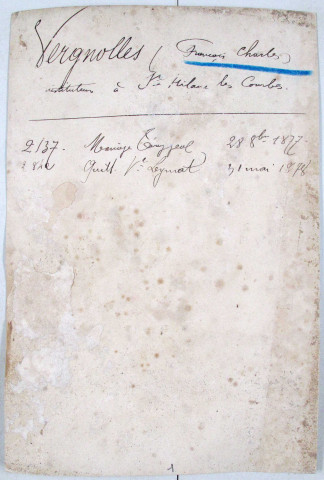 Vergnolles (François Charles)
instituteur à St Hilaire les Combes.
2137. Mariage 28 8bre 1877
Quitt. Vve Leymat 31 mai 1878
1